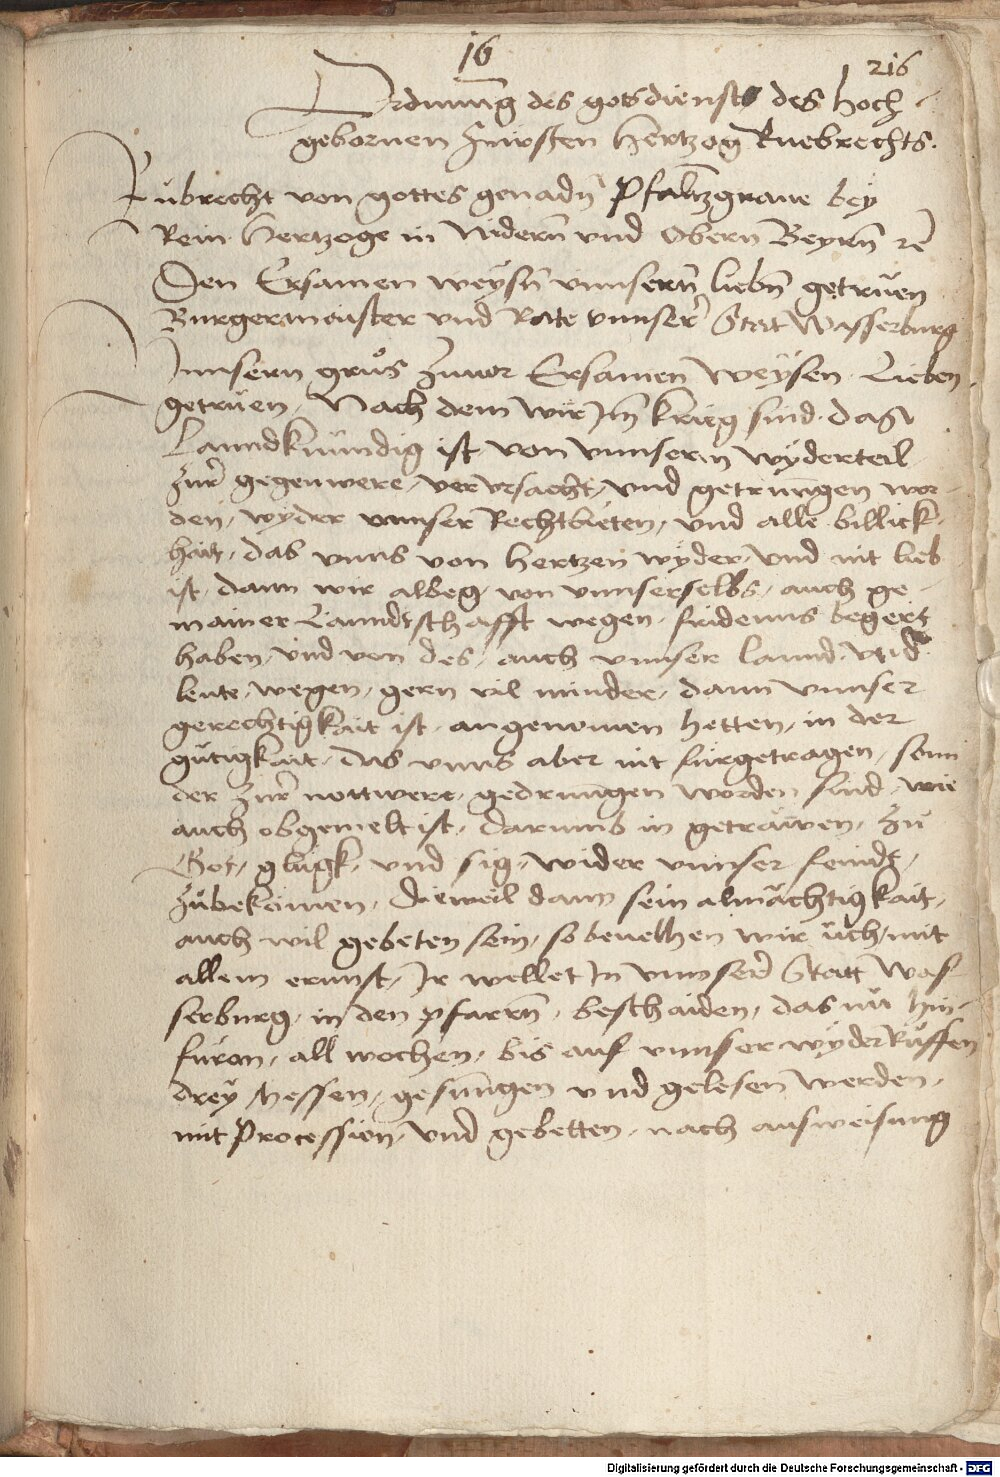 16
216
Ordnung des gotsdiensts des hoch
gebornen Fursten Hertzog Ruebrechts.
Růbrecht von gottes genadn Pfaltzgraue bey
Rein Hertzoge in Nidern vnd Obern Beyrn rc
Den Ersamen weysn vnnsern liebn getruen
Burgermaister vnd Rate vnnser Stat Wasserburg
Vnnsern grůs zuuor Ersamen Weysen Lieben
getruen, Nach dem wir Jm krieg sind. das
Lanndkundig ist von vnnserm wyderteil
zur gegenwere, ververursacht, vnd getrungen wor
den, wyder vnnser Rechtbieten, vnd alle billick
hait, das vnns von hertzen wyder, vnd nit lieb
ist, dann wir albeg, von vnnserselbs, auch ge
mainer Lanndtschafft wegen, fridenns begert
haben, vnd von des, auch vnnser lannd vnd
leute, wegen, gern vil minder, dann vnnser
gerechtigkait ist, angenomen hetten, in der
gütigkait, das vnns aber nit fürgetragen, sonn
der zur nottwere, gedrungen worden sind, wie
auch obgemelt ist, darumb in getrawen, zu
Got, glugk, vnd sig, wider vnnser feindt,
zubekomen, Dieweil dann sein almächtigkait,
auch wil gebeten sein, so beuelhen wir üch, mit
allem ernnst, Jr wellet Jn vnnser Statt Was
serburg, in den pfarrn, beschaiden, das nu hin
füron, all wochen, bis auf vnnser wyderRůffen
drey Messen, gesungen vnd gelesen werden,
mit Procession, vnd gebetten, nach ausweisung
Digitalisierung gefördert durch die Deutsche Forschungsgemeinschaft - DFG